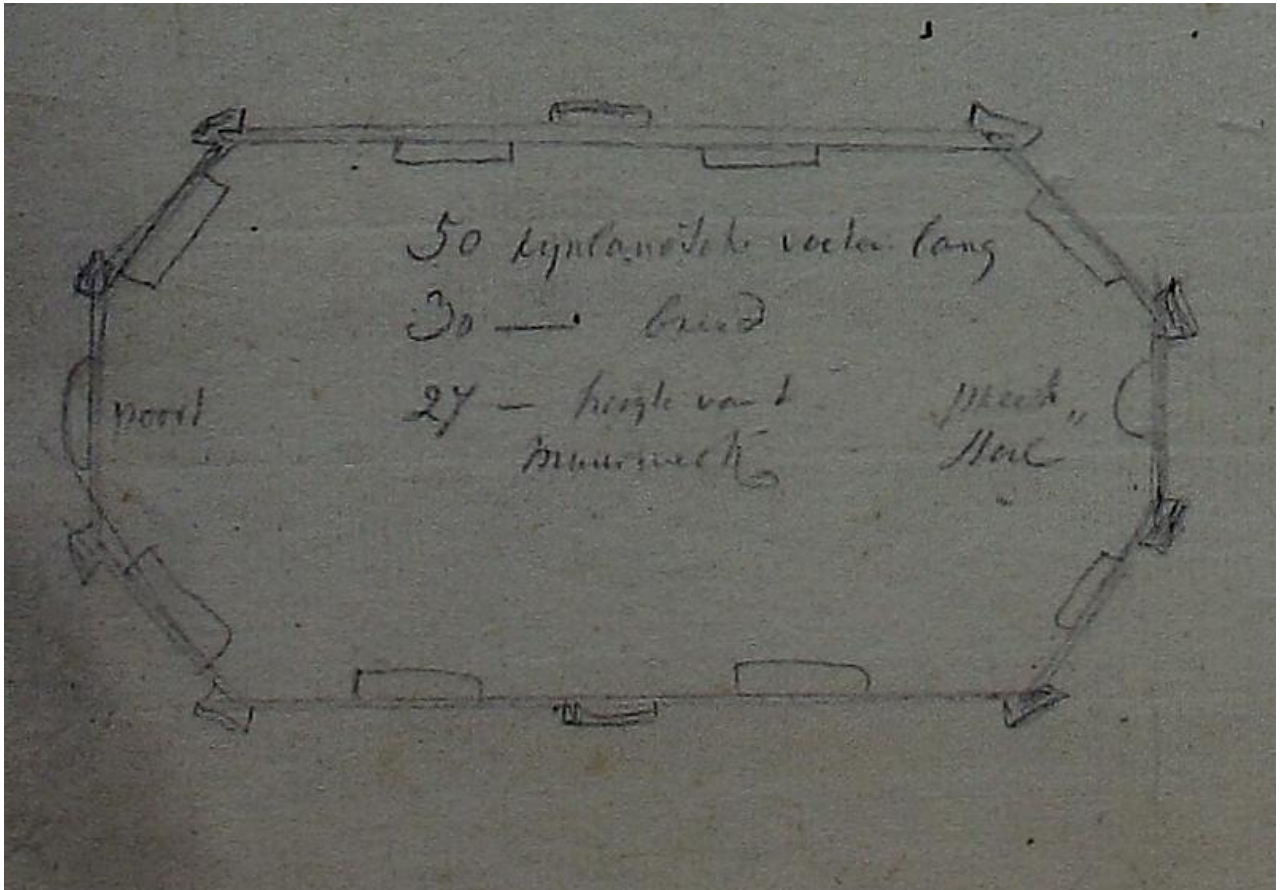 50 rynlandsche voeten lang
30 — breed
27 — hoogte van t
muurwerk
poort
preek„
stoel